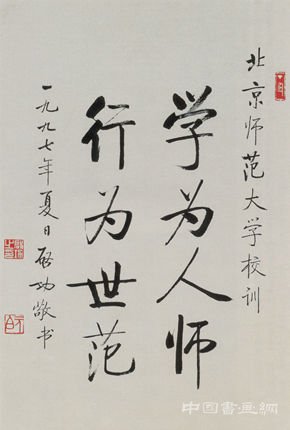 北京师范大学校训
学为人师
行为世范
一九九七年夏日启功敬书
中国书画網